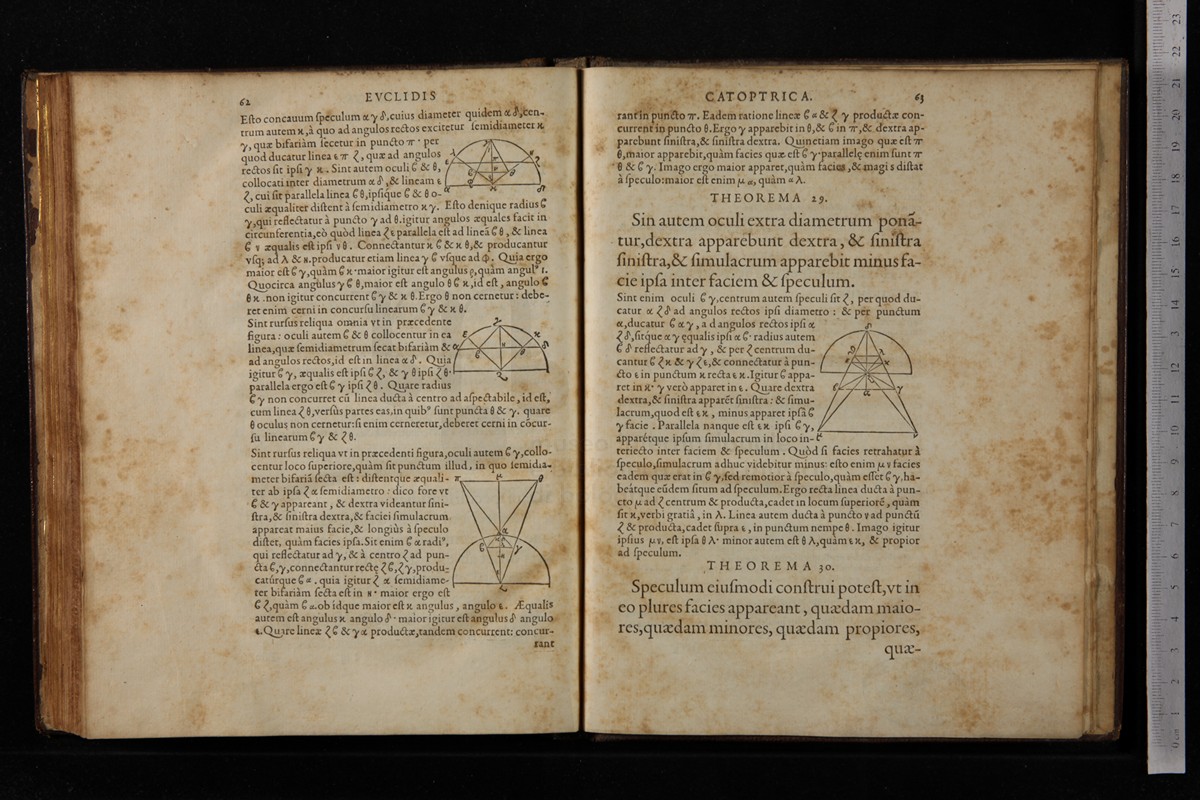 62 EVCLIDIS
Esto concauum speculum α γ δ, cuius diameter quidem α δ, cen-
trum autem κ, à quo ad angulos rectos excitetur semidiameter κ
γ, quæ bifariàm secetur in puncto π · per
quod ducatur linea ε π ζ, quæ ad angulos
rectos sit ipsi γ κ. Sint autem oculi ϐ & θ,
collocati inter diametrum α δ, & lineam ε
ζ, cui sit parallela linea ϐ θ, ipsique ϐ & θ o-
culi æqualiter distent à semidiametro κ γ. Esto denique radius ϐ
γ, qui reflectatur à puncto γ ad θ. igitur angulos æquales facit in
circunferentia, eò quòd linea ζ ε parallela est ad lineã ϐ θ, & linea
ϐ ν æqualis est ipsi ν θ. Connectantur κ ϐ & κ θ, & producantur
vsq; ad λ & η. producatur etiam linea γ ϐ vsque ad φ. Quia ergo
maior est ϐ γ, quàm ϐ κ · maior igitur est angulus ρ, quàm angulꝰ ι.
Quocirca angulus γ ϐ θ, maior est angulo θ ϐ κ, id est, angulo ϐ
θ κ. non igitur concurrent ϐ γ & κ θ. Ergo θ non cernetur: debe-
ret enim cerni in concursu linearum ϐ γ & κ θ.
Sint rursus reliqua omnia vt in præcedente
figura: oculi autem ϐ & θ collocentur in ea
linea, quæ semidiametrum secat bifariàm &
ad angulos rectos, id est in linea α δ. Quia
igitur ϐ γ, æqualis est ipsi ϐ ζ, & γ θ ipsi ζ θ·
parallela ergo est ϐ γ ipsi ζ θ. Quare radius
ϐ γ non concurret cũ linea ducta à centro ad aspectabile, id est,
cum linea ζ θ, versùs partes eas, in quibꝰ sunt puncta θ & γ. quare
θ oculus non cernetur: si enim cerneretur, deberet cerni in côcur-
su linearum ϐ γ & ζ θ.
Sint rursus reliqua vt in præcedenti figura, oculi autem ϐ γ, collo-
centur loco superiore, quàm sit punctum illud, in quo semidia-
meter bifariã secta est: distentque æquali-
ter ab ipsa ζ α semidiametro: dico fore vt
ϐ & γ appareant, & dextra videantur sini-
stra, & sinistra dextra, & faciei simulacrum
appareat maius facie, & longiùs à speculo
distet, quàm facies ipsa. Sit enim ϐ α radiꝰ,
qui reflectatur ad γ, & à centro ζ ad pun-
cta ϐ, γ, connectantur rectę ζ ϐ, ζ γ, produ-
catúrque ϐ α. quia igitur ζ α semidiame-
ter bifariàm secta est in η · maior ergo est
ϐ ζ, quàm ϐ α. ob idque maior est κ angulus, angulo ε. Æqualis
autem est angulus κ angulo δ · maior igitur est angulus δ angulo
ε. Quare lineæ ζ ϐ & γ α productæ, tandem concurrent: concur-
rant
CATOPTRICA. 63
rant in puncto π. Eadem ratione lineæ ϐ α & ζ γ productæ con-
current in puncto θ. Ergo γ apparebit in θ, & ϐ in π, & dextra ap-
parebunt sinistra, & sinistra dextra. Quinetiam imago quæ est π
θ, maior apparebit, quàm facies quæ est ϐ γ· parallelę enim sunt π
θ & ϐ γ. Imago ergo maior apparet, quàm facies, & magis distat
à speculo: maior est enim μ α, quàm α λ.
THEOREMA 29.
Sin autem oculi extra diametrum ponã-
tur, dextra apparebunt dextra, & sinistra
sinistra, & simulacrum apparebit minus fa-
cie ipsa inter faciem & speculum.
Sint enim oculi ϐ γ, centrum autem speculi sit ζ, per quod du-
catur α ζ δ ad angulos rectos ipsi diametro: & per punctum
α, ducatur ϐ α γ, ad angulos rectos ipsi α
ζ δ, sitque α γ ęqualis ipsi α ϐ· radius autem
ϐ δ reflectatur ad γ, & per ζ centrum du-
cantur ϐ ζ κ & γ ζ ε, & connectatur à pun-
cto ε in punctum κ recta ε κ. Igitur ϐ appa-
ret in κ· γ verò apparet in ε. Quare dextra
dextra, & sinistra apparẽt sinistra: & simu-
lacrum, quod est ε κ, minus apparet ipsã ϐ
γ facie. Parallela nanque est ε κ ipsi ϐ γ,
apparétque ipsum simulacrum in loco in-
teriecto inter faciem & speculum. Quòd si facies retrahatur à
speculo, simulacrum adhuc videbitur minus: esto enim μ ν facies
eadem quæ erat in ϐ γ, sed remotior à speculo, quàm esset ϐ γ, ha-
beàtque eũdem situm ad speculum. Ergo recta linea ducta à pun-
cto μ ad ζ centrum & producta, cadet in locum superiorẽ, quàm
sit κ, verbi gratiâ, in λ. Linea autem ducta à puncto ν ad punctũ
ζ & producta, cadet supra ε, in punctum nempe θ. Imago igitur
ipsius μν, est ipsa θ λ· minor autem est θ λ, quàm ε κ, & propior
ad speculum.
THEOREMA 30.
Speculum eiusmodi construi potest, vt in
eo plures facies appareant, quædam maio-
res, quædam minores, quædam propiores,
quæ-